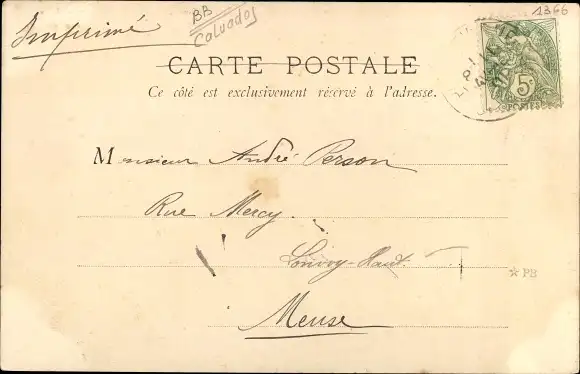 1366
BB
Calvados
Imprimé
CARTE POSTALE
Ce côté est exclusivement réservé à l'adresse.
5c
POSTES
Monsieur André Person
Rue Mercy.
Haut
☆ PB
Meuse